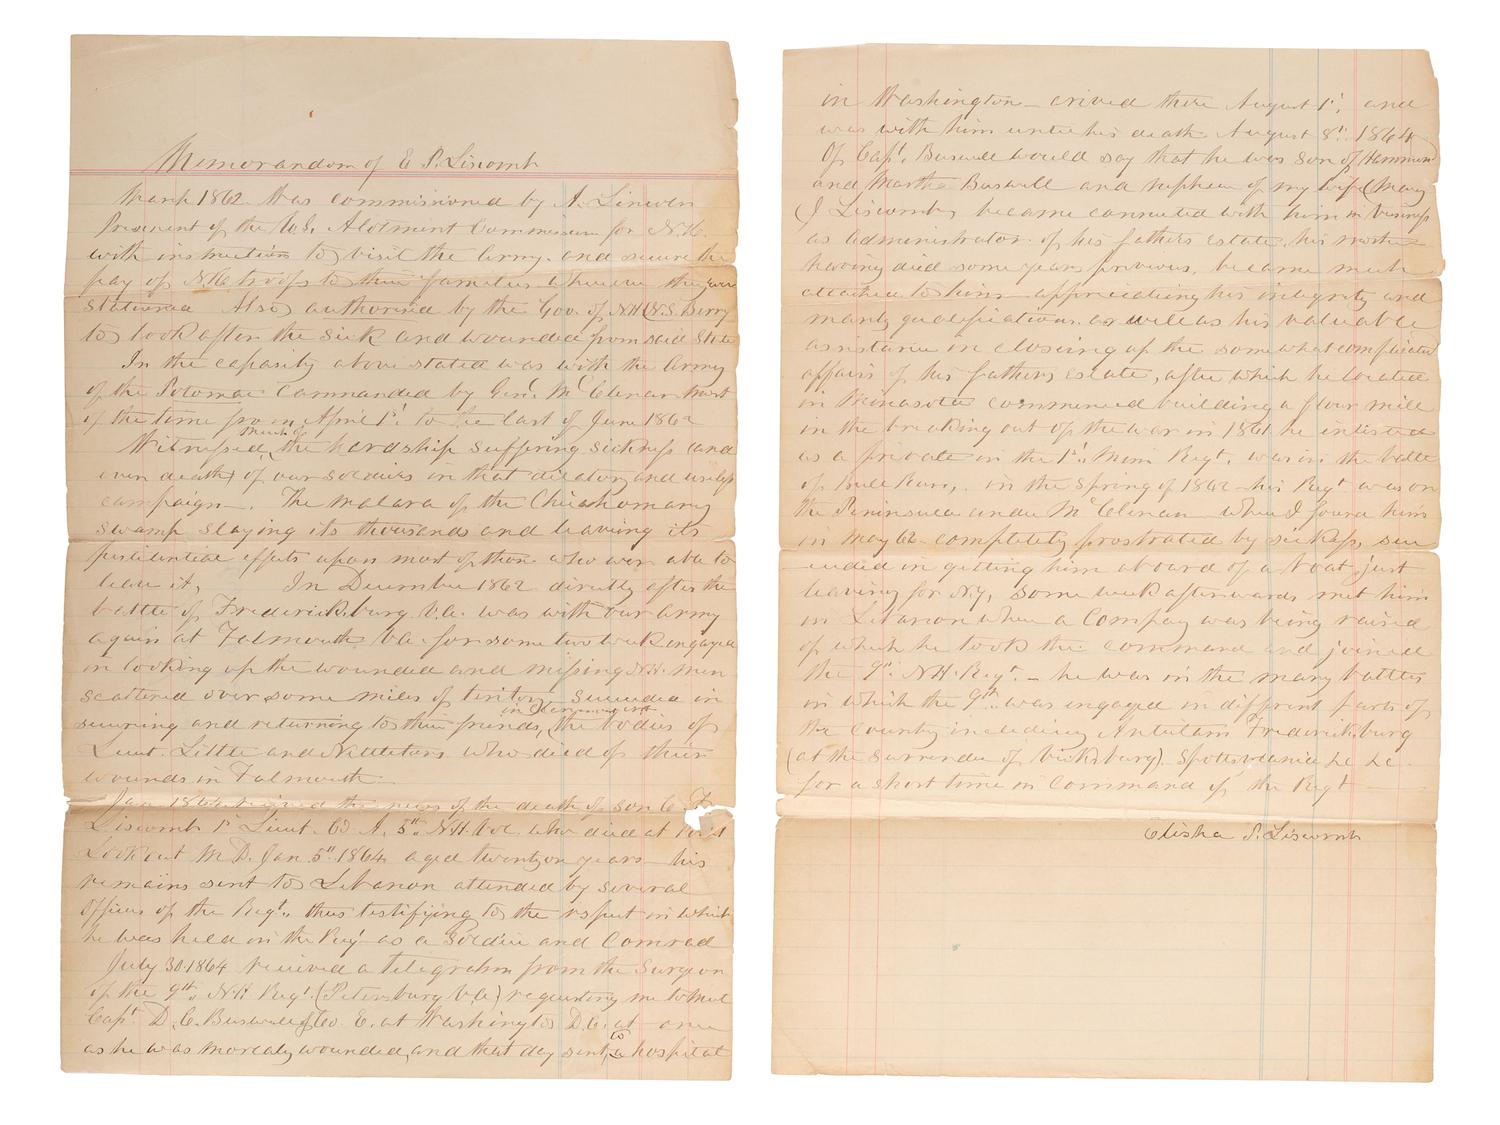 Memorandom of E P. Liscomb
March 1862. Was commissioned by A. Lincoln
President of the U.S, Alotment Commissioner for N.H.
with instruction to visit the Army. and secure the
pay of N.H. troops to their families where in they were
stationed Also authorised by the Gov. of NH (N.S. Berry
to look after the sick and wounded from said State
In the capasity above stated was with the Army
of the Potomac Commanded by Genl McClenan most
of the time from April 1st to the last of June 1862
Witnessed, much of the hardship suffering sickness (and
even death) of our soldiers in that dilatory and useless
campaign -. The malara of the Chickahomany
swamp slaying its thousands and leaving its
pestilential effects upon most of those who wer able to
leave it, In December 1862 directly after the
battle of Fredericksburg Va. was with our army
again at Falmouth Va for some two week engaged
in looking up the wounded and missing N.H. men
scattered over some miles of teritory succeeded in
securing and returning to their friends, in Oternment the bodies of
Lieut. Little and Nettleton who died of their
wounds in Falmouth
Jan 1864 recived the news of the death of son C. F.
Liscomb 1st Lieut. Co A, 5th N.H. Vol. who died at Point
Lookout M D. Jan 5th 1864 aged twenty on years his
remains sent to Lebanon attended by several
officers of the Regt. thus testifying to the respect in which
he was held in the Regt as a Soldier and Comrad
July 30 1864 received a telegrahm from the Surgeon
of the 9th. N.H Regt. (Petersburg Va) requesting me to meet
Capt. D. C. Buswell of Co. E. at Washington D.C. at once
as he was mortaly wounded, and that day sent, to hospital
in Washington - arived there August 1st, and
was with him until his death August 8th. 1864
Of Capt. Buswell would say that he was son of Hammon
and Martha Buswell and nephew of my wife (Mary
J Liscomb, became connected with him in business
as administrator of his fathers estate, his mother
having died some years previous, became much
attached to him - appreciating his integrity and
manly qualifications. as well as his valuable
assistance in closing up the somewhat complicated
affairs of his fathers estate, after which he located
in Minasota commenced building a flour mill
in the breaking out of the war in 1861 he inlisted
as a private in the 1st. Minn Regt. was in the battle
of Bull Run, in the spring of 1862 - his Regt was on
the Peninsula under McClenan when I found him
in May 62 completely prostrated by sickness, suc
ceeded in getting him aboard of a boat just
leaving for N.Y, some week afterwards met him
in Lebanon when a Company was being raised
of which he took the command and joined
the 9th. N.H. Regt. - he was in the many battles
in which the 9th. was engaged in diffirent parts of
the Country including Antietam Fredericksburg
(at the Surrender of Vicksburg). Spottsvania &c &c
for a short time in Command of the Regt
Elisha P. Liscomb